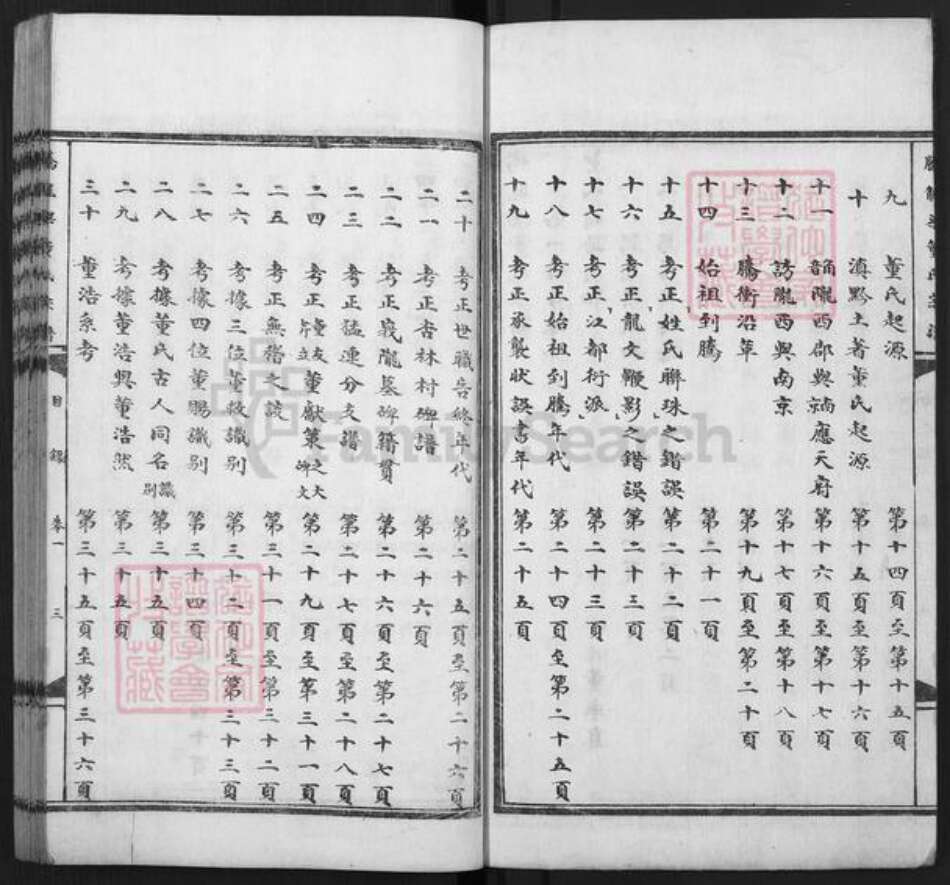 九　董氏起源　第十四頁至第十五頁
十　滇黔土著董氏起源　第十五頁至第十六頁
十一　韻隴西郡與喃應天府　第十六頁至第十七頁
十二　謗隴西與南京　第十七頁至第十八頁
十三　騰衝沿革　第十九頁至第二十頁
十四　始祖到騰　第二十一頁
十五　考正姓氏聯珠之錯誤　第二十二頁
十六　考正龍文鞭影之錯誤　第二十三頁
十七　考正江都衍派　第二十三頁
十八　考正始祖到騰年代　第二十四頁至第二十五頁
十九　考正承襲狀誤書年代　第二十五頁
二十　考正世職告終年代　第二十五頁至第二十六頁
二一　考正杏林村碑譜　第二十六頁
二二　考正峩隴墓碑籍貫　第二十六頁至第二十七頁
二三　考正猛連分支譜　第二十七頁至第二十八頁
二四　董獻策之大碑文　第二十九頁至第三十一頁
二五　考正無稽之談　第三十一頁至第三十二頁
二六　考據三位董救識別　第三十二頁至第三十三頁
二七　考據四位董賜識別　第三十四頁
二八　考據董氏古人同名識別　第三十五頁
二九　考據董浩興董浩然　第三十五頁
三十　董浩系考　第三十五頁至第三十六頁
目錄　卷一　三
FamilySearch